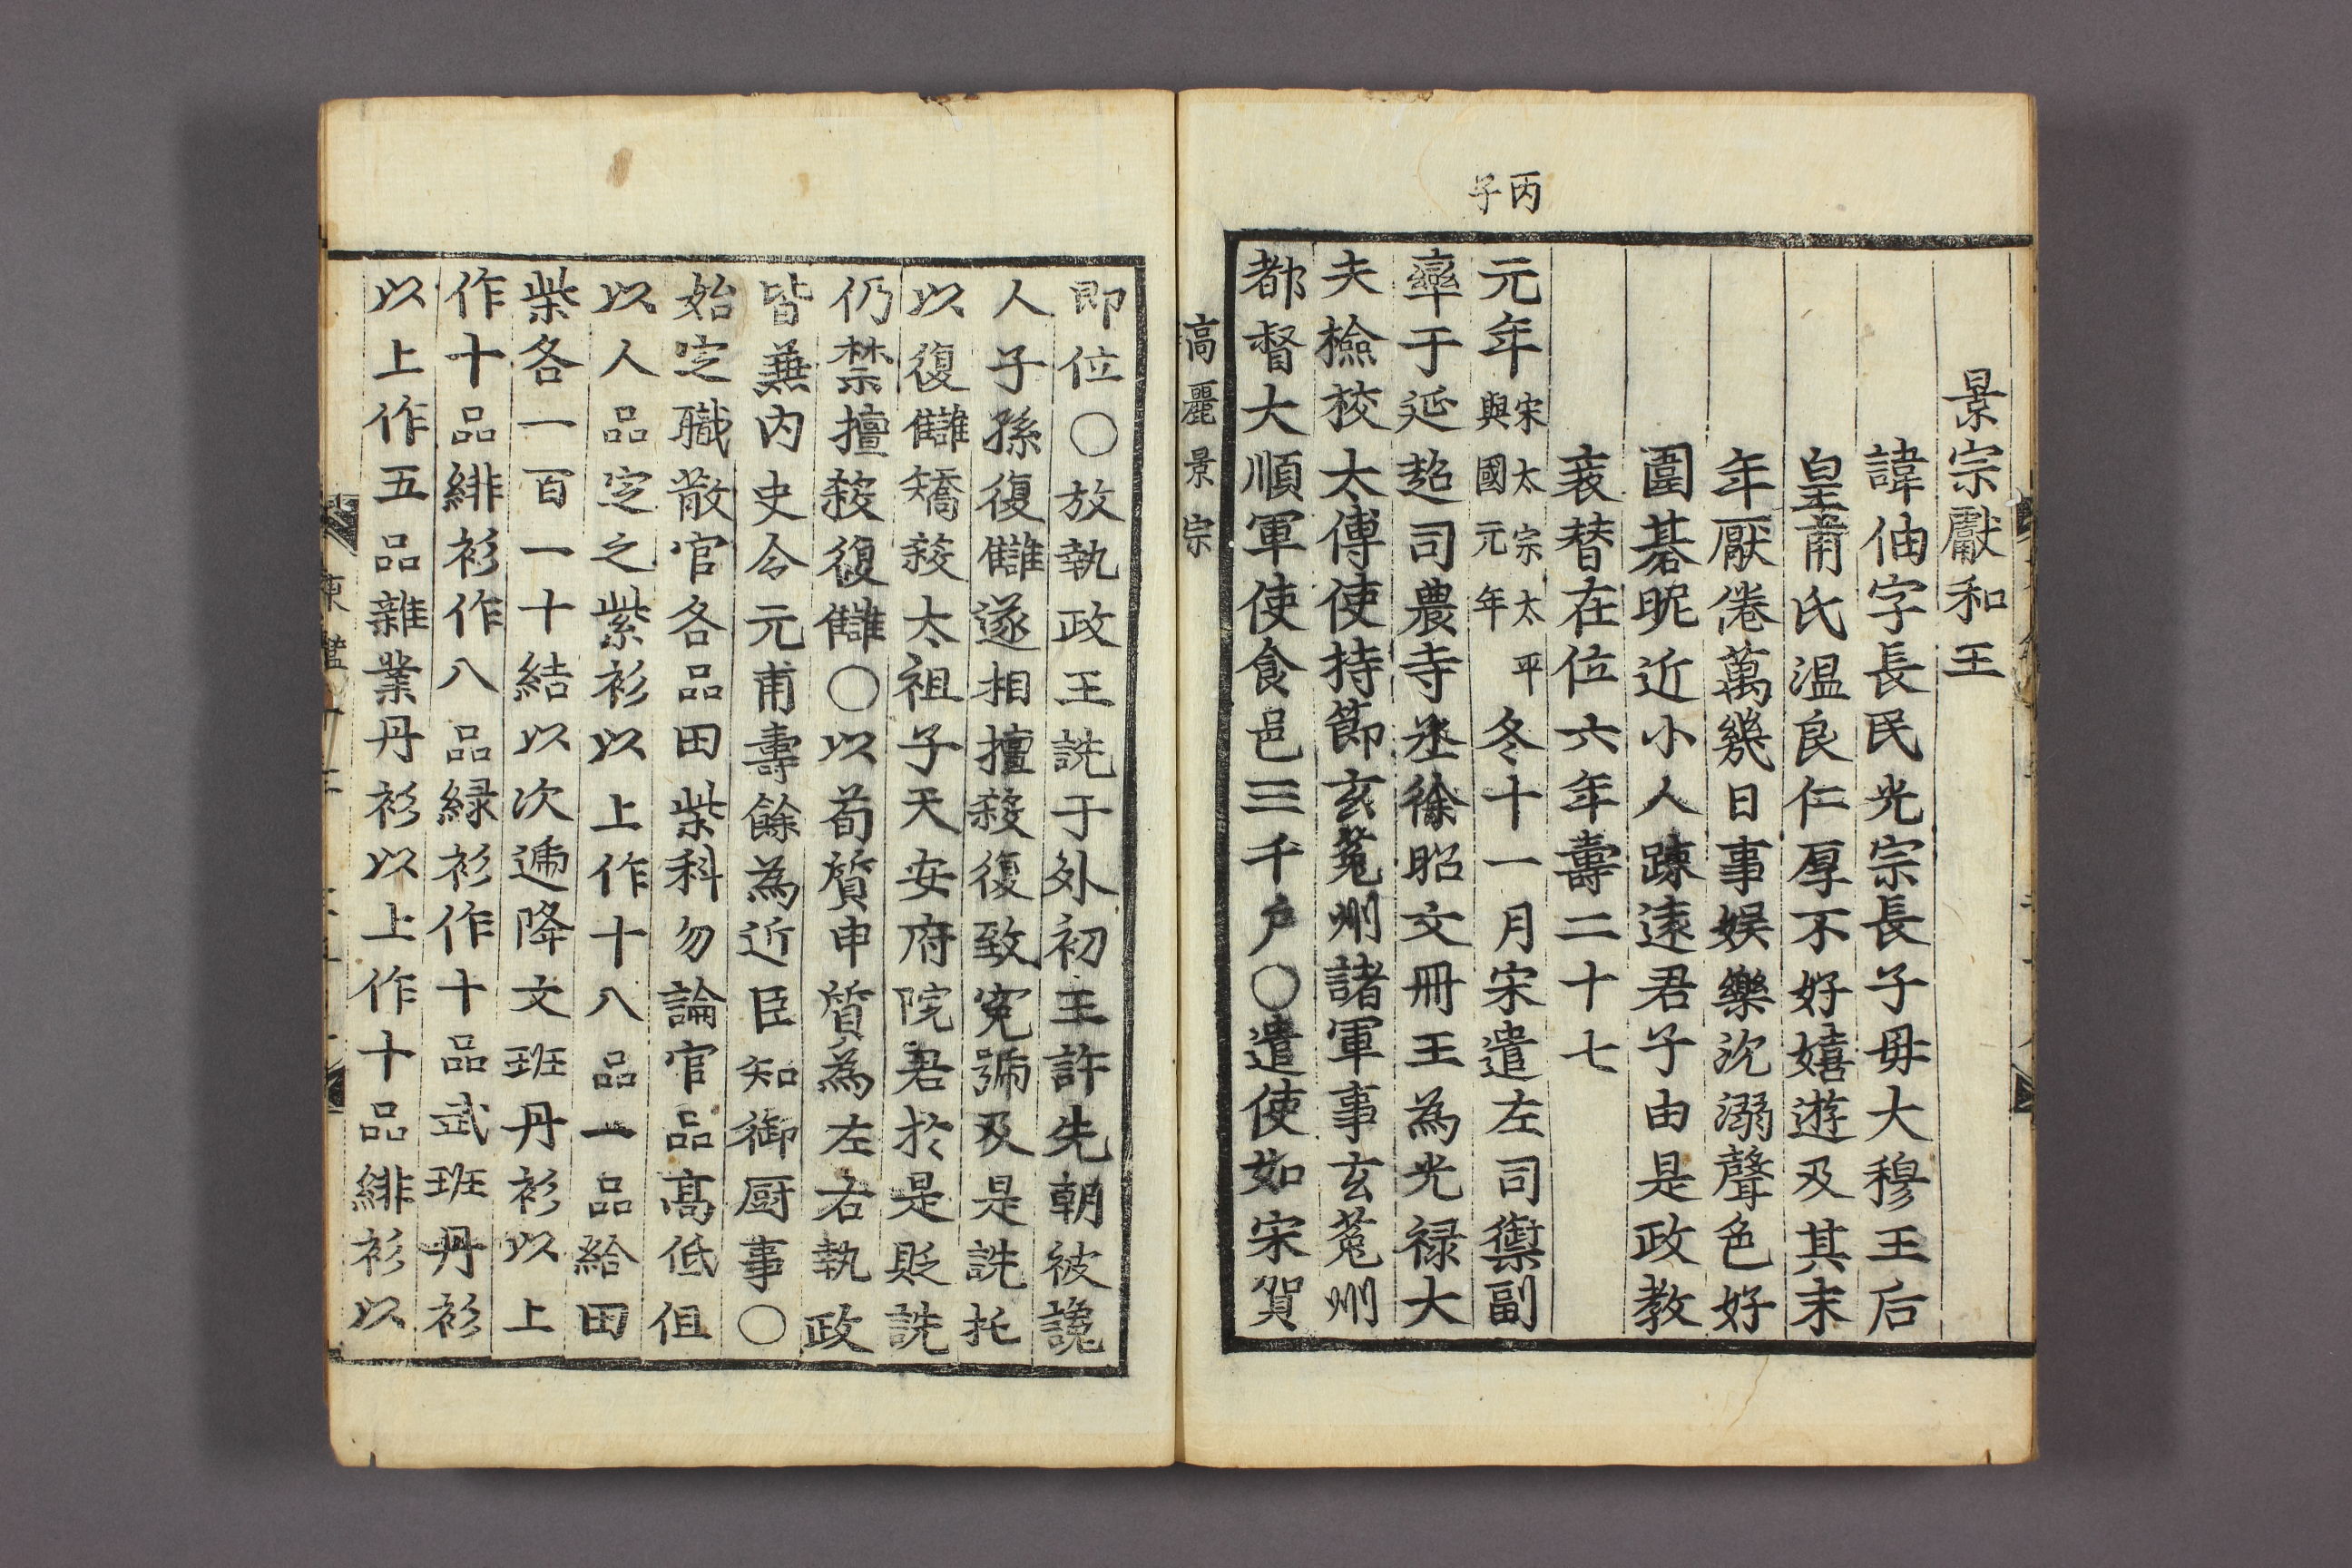 丙子
景宗獻和王
諱伷字長民光宗長子毋大穆王后
皇甫氏溫良仁厚不好嬉遊及其末
年厭倦萬幾日事娛樂沈溺聲色好
圍碁昵近小人踈遠君子由是政教
衰替在位六年壽二十七
元年宋太宗太平與國元年冬十一月宋遣左司禦副
率于延超司農寺丞徐昭文冊王為光祿大
夫檢校太傅使持節玄菟州諸軍事玄菟州
都督大順軍使食邑三千户○遣使如宋賀
高麗景宗
即位○放執政王詵于外初王許先朝被讒
人子孫復讎遂相擅殺復致寃號及是詵托
以復讎矯殺太祖子天安府院君於是貶詵
仍禁擅殺復讎○以荀質申質為左右執政
皆兼內史令元甫壽餘為近臣知御厨事○
始定職散官各品田柴科勿論官品高低但
以人品定之紫衫以上作十八品一品給田
柴各一百一十結以次遞降文班丹衫以上
作十品緋衫作八品緑衫作十品武班丹衫
以上作五品雜業丹衫以上作十品緋衫以